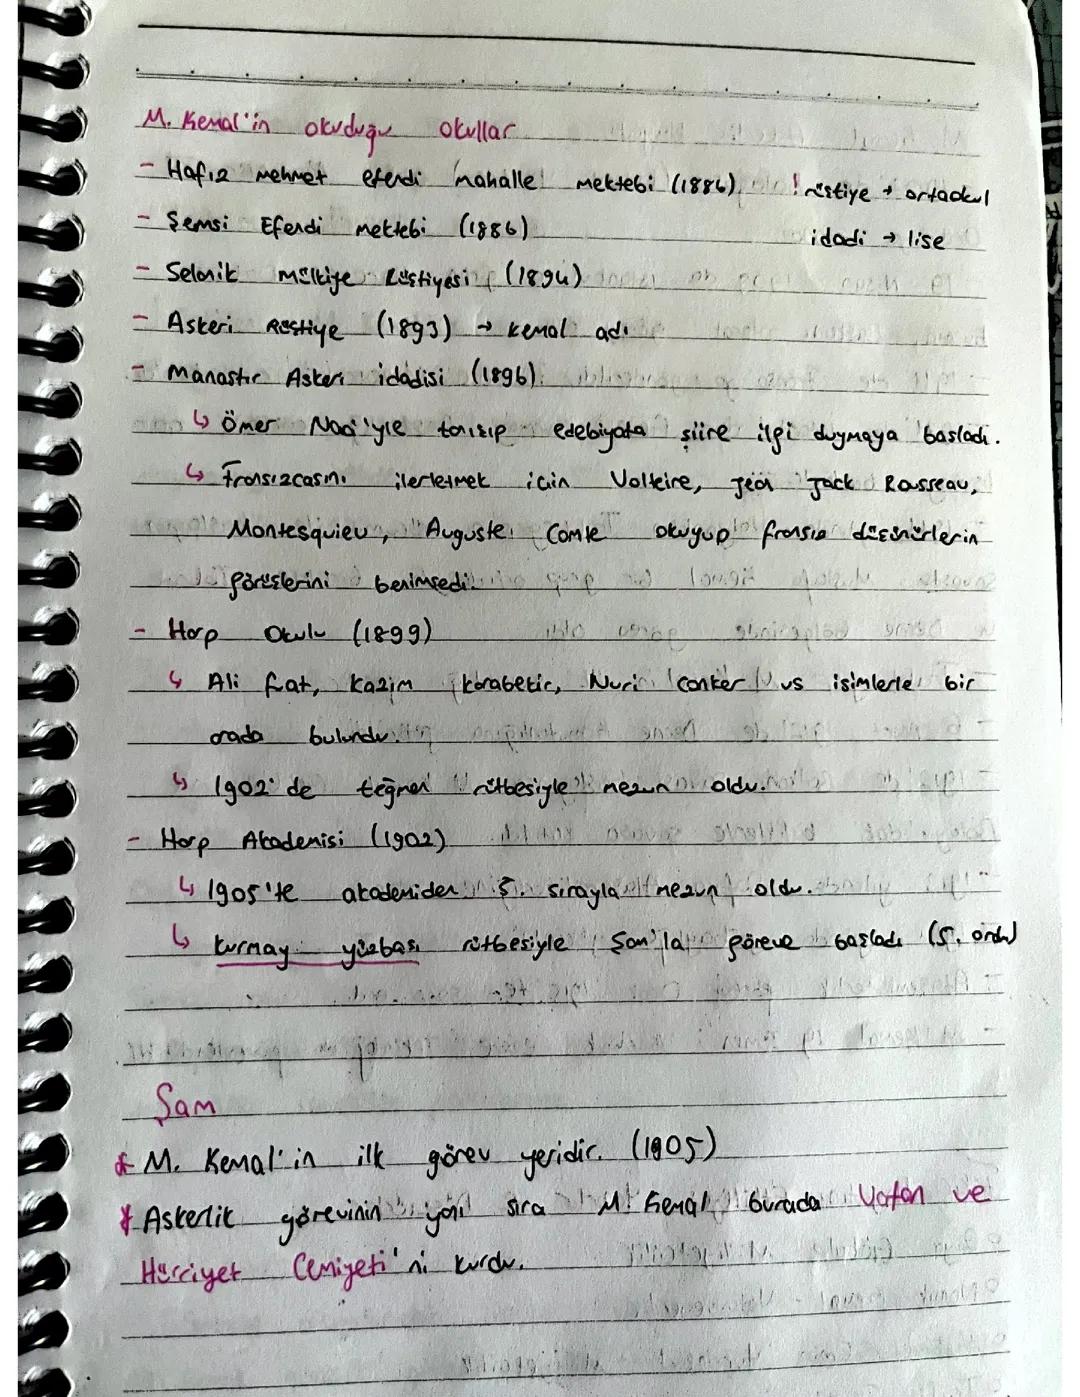 M. Kemal'in okuduğu okullar
- Hafız mehmet efendi mahalle mektebi (1886) ! rüştiye → ortaokul
- Şemsi Efendi mektebi (1886) idadi → lise
- Selanik mülkiye Rüştiyesi (1894)
- Askeri Rüştiye (1893) → kemal adı
- Manastır Askeri idadisi (1896)
↳ Ömer Naci'yle tanışıp edebiyata şiire ilgi duymaya başladı.
↳ Fransızcasını ilerletmek için Volteire, jean Jack Rousseau,
Montesquieu, Auguste Comte okuyup fransız düşünürlerin
görüşlerini benimsedi.
- Harp Okulu (1899)
↳ Ali fuat, Kazım karabekir, Nuri conker vs isimlerle bir
arada bulundu.
↳ 1902'de teğmen rütbesiyle mezun oldu.
- Harp Akademisi (1902)
↳ 1905'te akademiden 5. sırayla mezun oldu.
↳ kurmay yüzbaşı rütbesiyle Şam'la göreve başladı (5. ordu)
Şam
* M. Kemal'in ilk görev yeridir. (1905)
* Askerlik görevinin yanı sıra M. Kemal burada Vatan ve
Hürriyet Cemiyeti'ni kurdu.